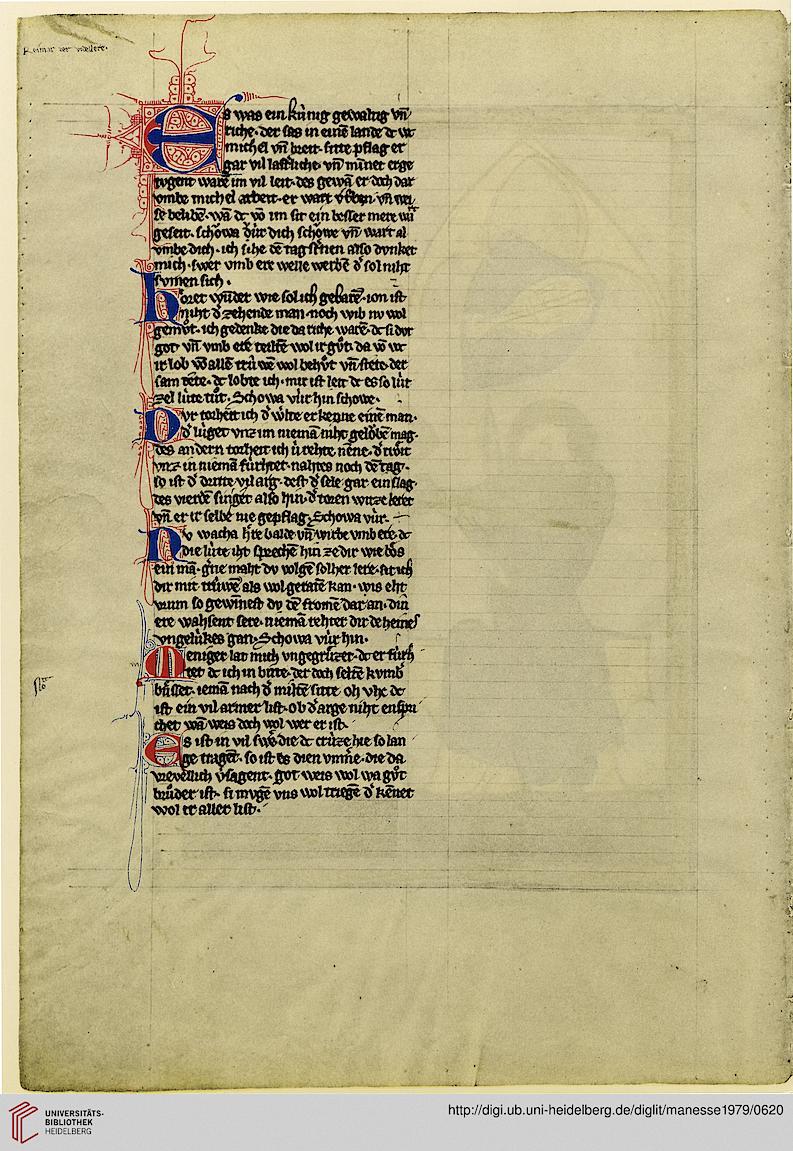 Reimar der videllere.
Es was ein kúnig gewaltig vn̄
riche· der sas in einē lande dc wc
michel vn̄ breit· sitte pflag er
gar vil lasterliche· vn̄ minner erge
tvgent warē im vil leit· des gewā er doch dar
vmbe michel arbeit· er wart
se beliben· wā dc vō im sit ein besser mere
geseit· schowa dur dich schowe vn̄ wart al
vmbe dich· ich sihe dē tag schinen also dvnket
mich· swer vmb ere welle werbē d͛ sol niht
svmen sich·
Horet wunder wie sol ich gebarē· ion ist
niht d͛ zehende man noch wib nv wol
gemvͦt· ich gedenke die da riche warē· dc si dvr
got vn̄ vmb ere teiltē wol ir gvͦt· da vō wc
ir lob vō allē trúwē wol behvͦt vn̄ stete· der
sam tete· dc lobte ich· mir ist leit dc es so lút
zel lúte tuͦt· Schowa vúr hin schowe·
Dvr torheit ich d͛ welte erkenne einē man·
d͛ lúget vnz im niemā niht gelobē mag·
des andern torheit ich ú rehte nēne· d͛
vnz in niemā fúrhtet· nahtes noch dē tag·
so ist d͛ dritte vil arg· dest d͛ sele gar ein slag·
des vierdē singet also hin· d͛ toren witze leret
vn̄ er ir selbe nie gepflag· Schowa vúr·
Nv wacha h͛re balde vn̄ wirbe vmb ere· dc
die lúte iht sprechē hin ze dir wie boͤs
ein mā· gerne maht dv volgē solher lere· sit ich
dir mit trúwē als wol geratē kan· wis eht
vrum so gewinnest dv dē fromē dar an· din
ere wahsent sere· niemā rehter dir deheines
vngelúkes gan· Schowa vúr hin·
Meniger lat mich vngegruͤzet· dc er fúrh
tet dc ich in bitte· der doch seltē kvmb͛
buͤsset· iemā nach d͛ miltē sitte
ist ein vil armer list· ob d͛ arge niht ensprı
chet wā weis doch wol wer er ist·
Es ist in vil swere die dc crúze hie so lan
ge tragent· so ist es dien die da
vrevellich v͛sagent· got weis wol wa gvͦt
bruͦder ist· si mvgē vns wol triegē d͛ kēnet
wol ir aller list·
UNIVERSITÄTS-
BIBLIOTHEK
HEIDELBERG
http://digi.ub.uni-heidelberg.de/diglit/manesse1979/0620